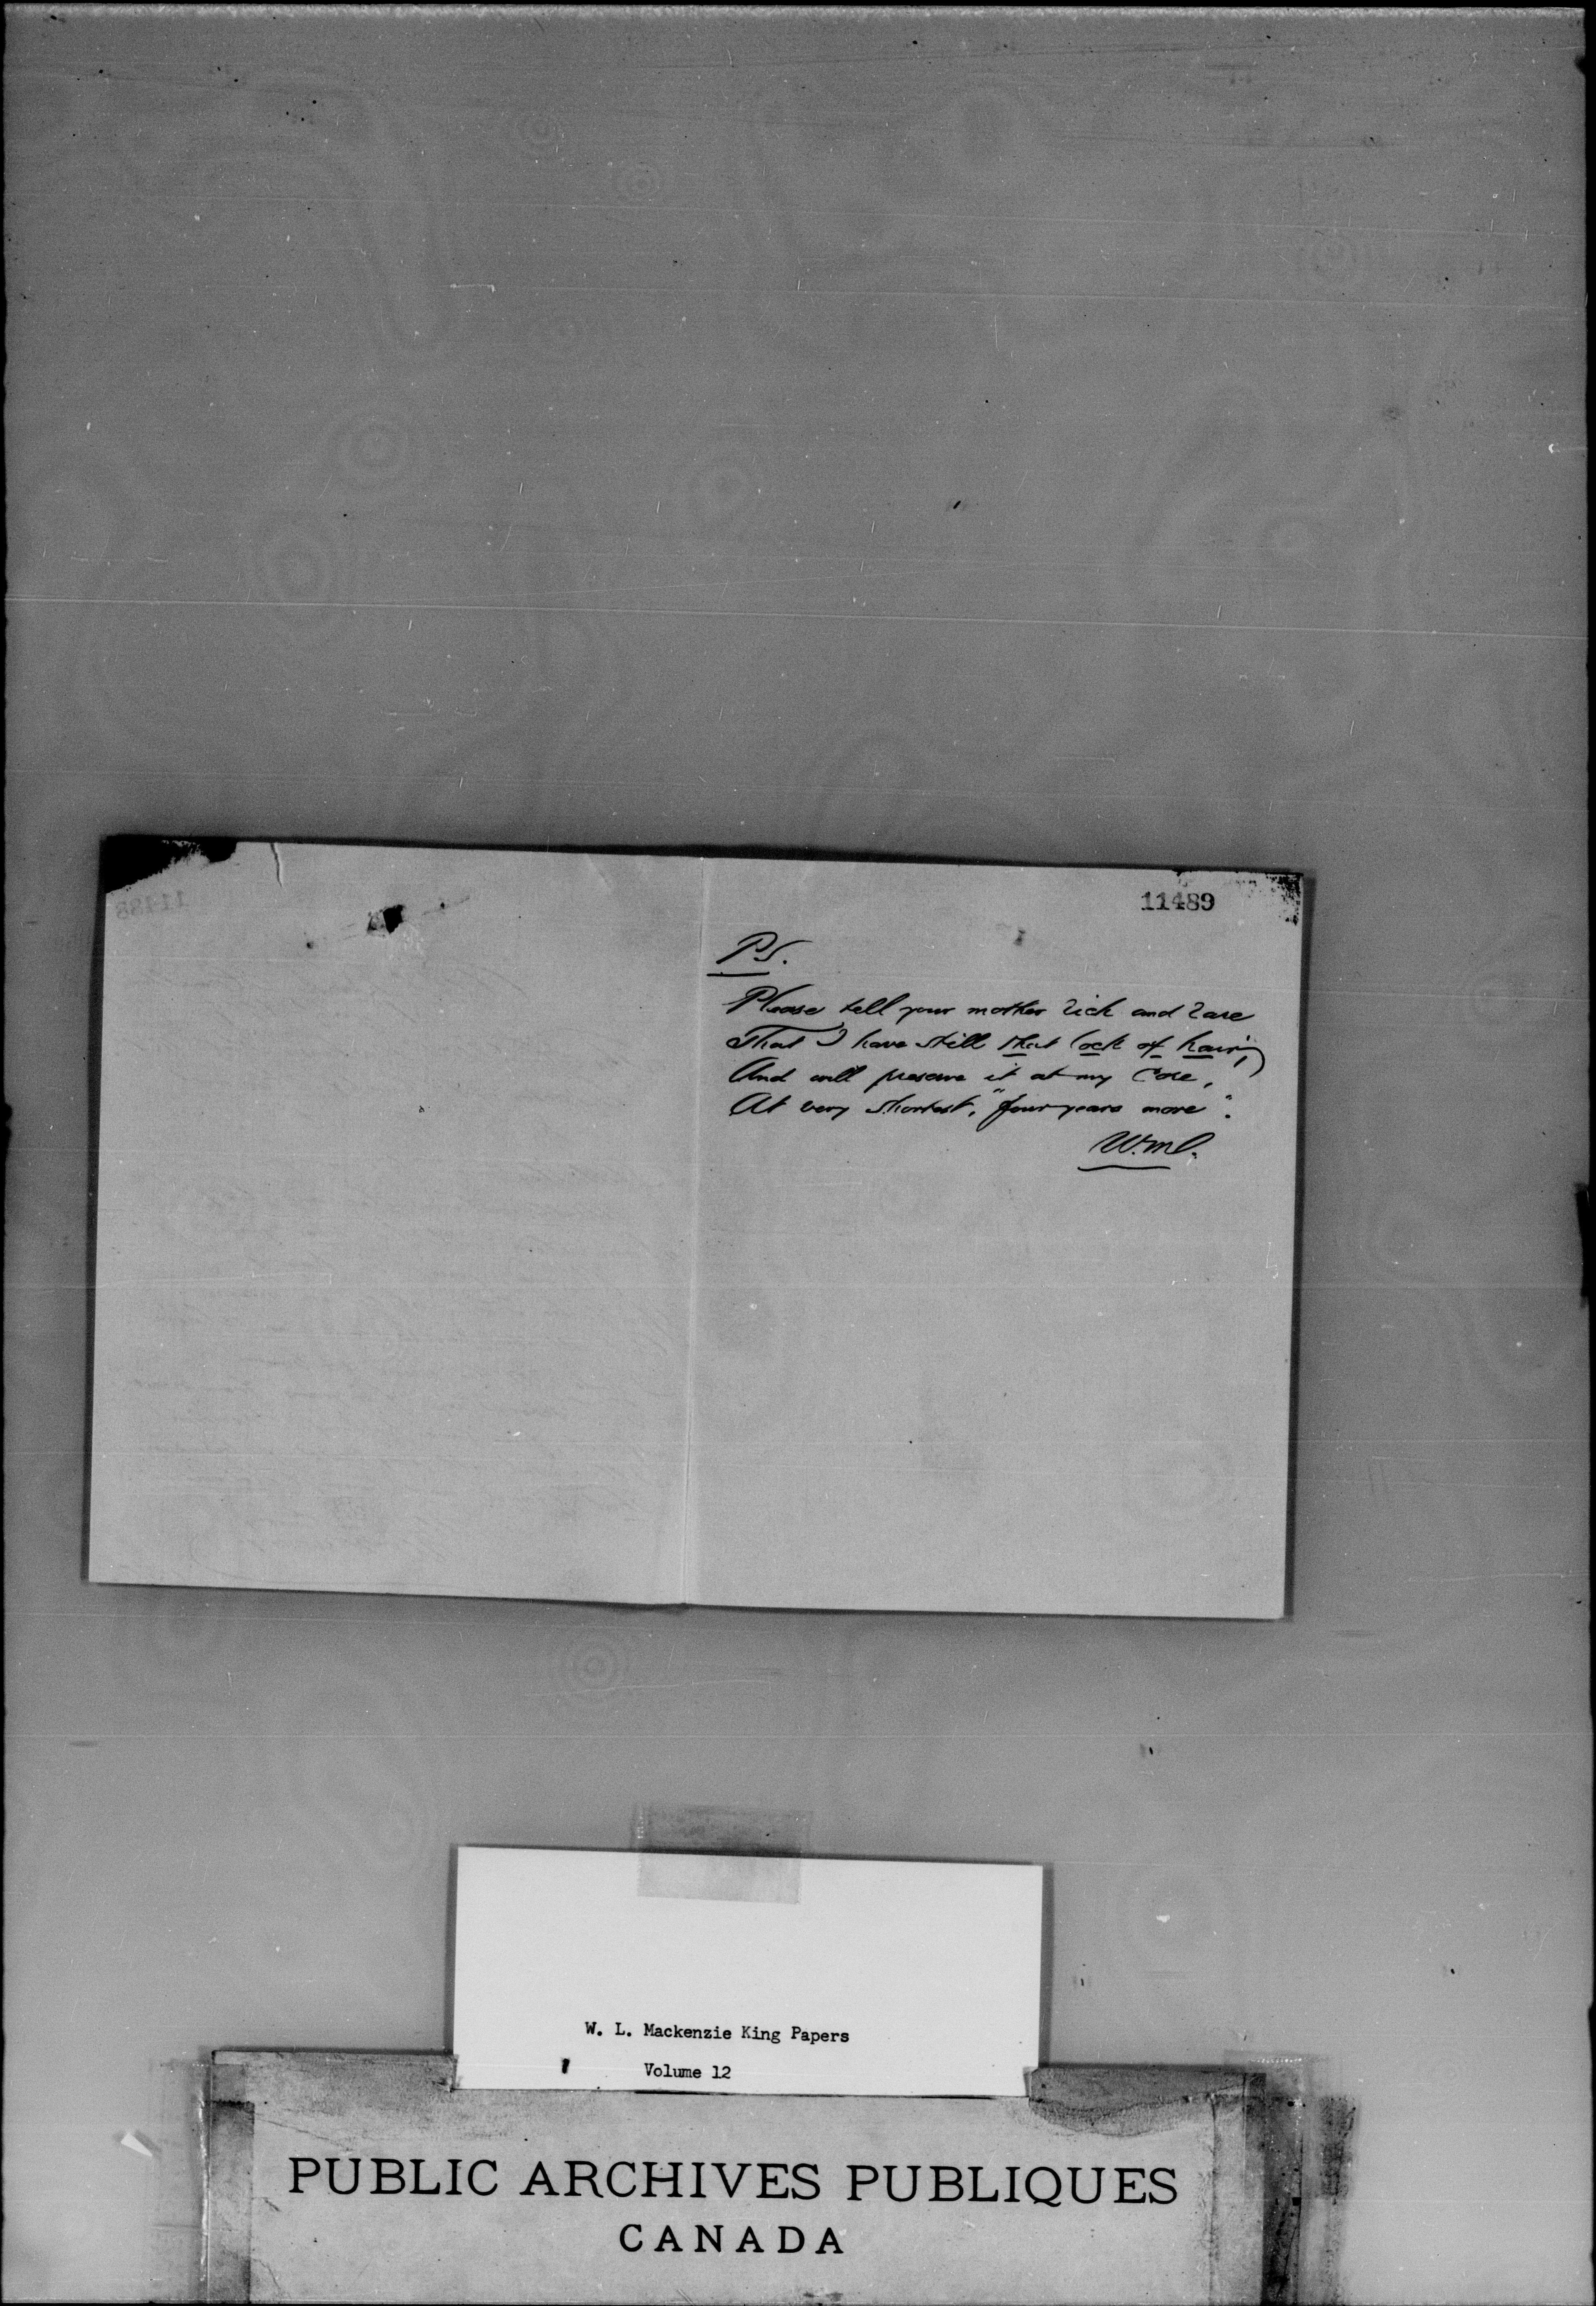 11489
P.S.
Please tell your mother rich and rare
That I have still that lock of hair,
And will preserve it at my core,
At very shortest, "four years more".
W.M.
W. L. Mackenzie King Papers
Volume 12
PUBLIC ARCHIVES PUBLIQUES
CANADA